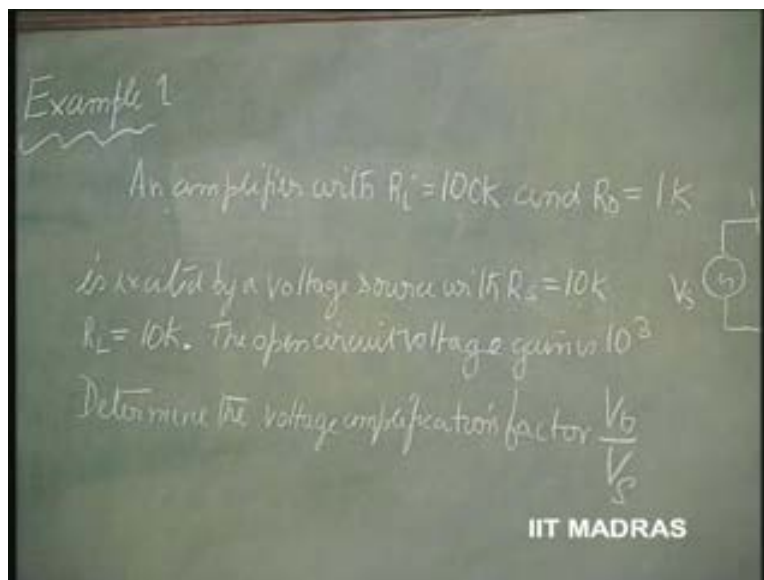 Example 1
An amplifier with Ri = 100k and Ro = 1k
is excited by a voltage source with Rs = 10k
RL = 10k. The open circuit voltage gain is 10³
Determine the voltage amplification factor Vo/Vs
Vs
IIT MADRAS